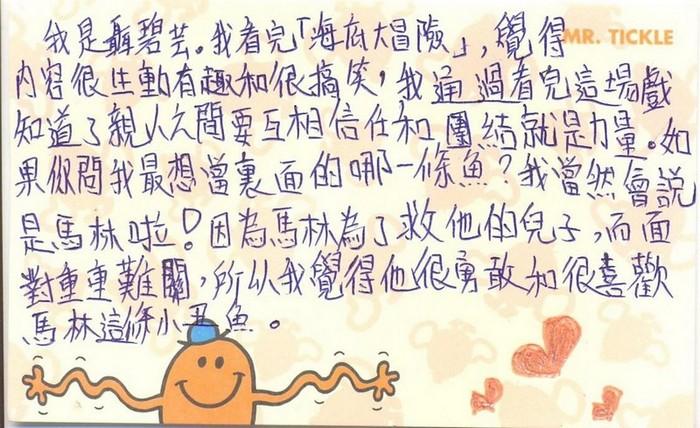 我是聶碧芸。我看完「海底大冒險」,覺得
MR. TICKLE
內容很生動有趣和很搞笑,我通過看完這場戲
知道了親人之間要互相信任和團結就是力量。如
果你問我最想當裏面的哪一條魚?我當然會說
是馬林啦!因為馬林為了救他的兒子,而面
對重重難關,所以我覺得他很勇敢和很喜歡
馬林這條小丑魚。